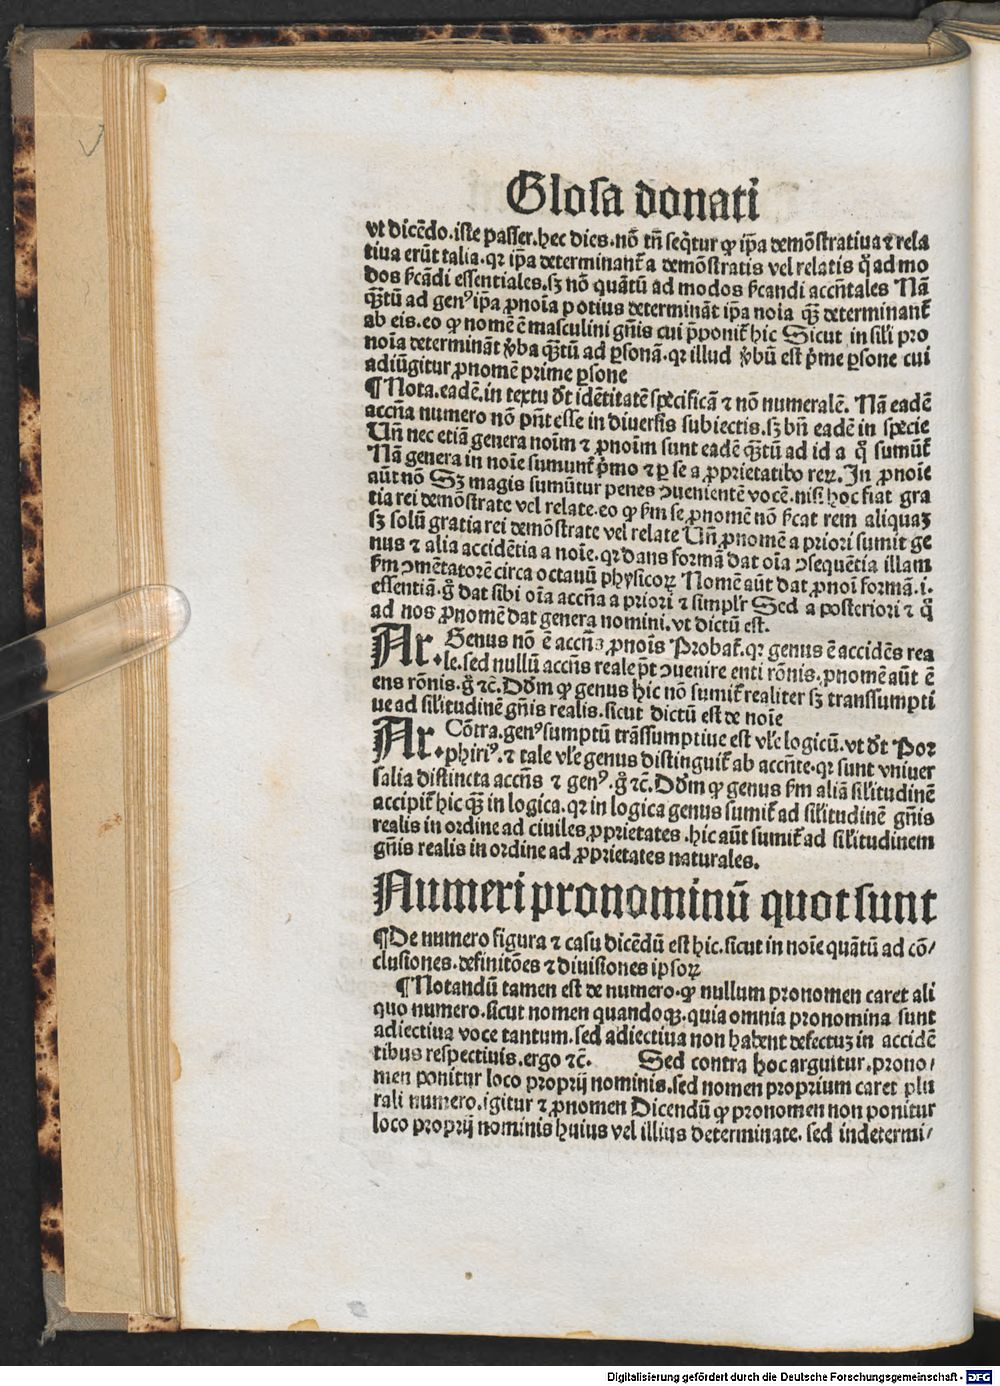 Glosa donati
vt dicēdo.iste passer.hec dies.nō tñ seq̄tur ꝙ ip̄a demōstratiua ⁊ rela
tiua erūt talia.qꝛ ip̄a determinant̄ a demōstratis vel relatis q̄ ad mo
dos s̄cādi essentiales.sꝫ nō quātū ad modos s̄candi accn̄tales Nā
q̄ꝫtū ad genꝰ ip̄a ꝓnoīa potius determināt ip̄a noīa q̄ꝫ determinant̄
ab eis.eo ꝙ nomē ē masculini gn̄is cui p̄ponit̄ hic Sicut in sil̄i pro
noīa determināt v̄ba q̄ꝫtū ad ꝑsonā.qꝛ illud v̄bū est p̄me ꝑsone cui
adiūgitur ꝓnomē prime ꝑsone
¶Nota.eadē.in textu dr̄t idētitatē specificā ⁊ nō numeralē. Nā eadē
accn̄a numero nō pn̄t esse in diuersis subiectis.sꝫ bn̄ eadē in specie
Un̄ nec etiā genera noīm ⁊ ꝓnoīm sunt eadē q̄ꝫtū ad id a q̄ sumūt̄
Nā genera in noīe sumunt̄ p̄mo ⁊ ꝑ se a ꝓprietatibꝰ reꝝ. In ꝓnoīe
aūt nō Sꝫ magis sumūtur penes ꝯuenientē vocē.nisi hoc fiat gra
tia rei demōstrate vel relate.eo ꝙ s̄m se ꝓnomē nō s̄cat rem aliquaꝫ
sꝫ solū gratia rei demōstrate vel relate Un̄ ꝓnomē a priori sumit ge
nus ⁊ alia accidētia a noīe.qꝛ dans formā dat oīa ꝯsequētia illam
s̄m ꝯmētatorē circa octauū physicoꝝ Nomē aūt dat ꝓnoī formā.i.
essentiā.g̊ dat sibi oīa accn̄a a priori ⁊ simpl̄r Sed a posteriori ⁊ q̊
ad nos ꝓnomē dat genera nomini.vt dictū est.
Ar. Genus nō ē accn̄s ꝓnoīs Probat̄.qꝛ genus ē accidēs rea
le.sed nullū accn̄s reale pōt ꝯuenire enti rōnis.ꝓnomē aūt ē
ens rōnis.g̊ ⁊c̄.Dd̄m ꝙ genus hic nō sumit̄ realiter sꝫ transsumpti
ue ad sil̄itudinē gn̄is realis.sicut dictū est de noīe
Ar. Cōtra.genꝰ sumptū trāssumptiue est vl̄e logicū.vt dr̄t Por
phiriꝰ.⁊ tale vl̄e genus distinguit̄ ab accn̄te.qꝛ sunt vniuer
salia distincta accn̄s ⁊ genꝰ.g̊ ⁊c̄.Dd̄m ꝙ genus s̄m aliā sil̄itudinē
accipit̄ hic q̄ꝫ in logica.qꝛ in logica genus sumit̄ ad sil̄itudinē gn̄is
realis in ordine ad ciuiles ꝓprietates.hic aūt sumit̄ ad sil̄itudinem
gn̄is realis in ordine ad ꝓprietates naturales.
Numeri pronominū quot sunt
¶De numero figura ⁊ casu dicēdū est hic.sicut in noīe quātū ad cō/
clusiones.definitōes ⁊ diuisiones ipsoꝝ
¶Notandū tamen est de numero.ꝙ nullum pronomen caret ali
quo numero.sicut nomen quandoqꝫ.quia omnia pronomina sunt
adiectiua voce tantum.sed adiectiua non habent defectuꝫ in accidē
tibus respectiuis.ergo ⁊c̄. Sed contra hoc arguitur.prono/
men ponitur loco proprij nominis.sed nomen proprium caret plu
rali numero.igitur ⁊ ꝓnomen Dicendū ꝙ pronomen non ponitur
loco proprij nominis huius vel illius determinate. sed indetermi/
Digitalisierung gefördert durch die Deutsche Forschungsgemeinschaft - DFG